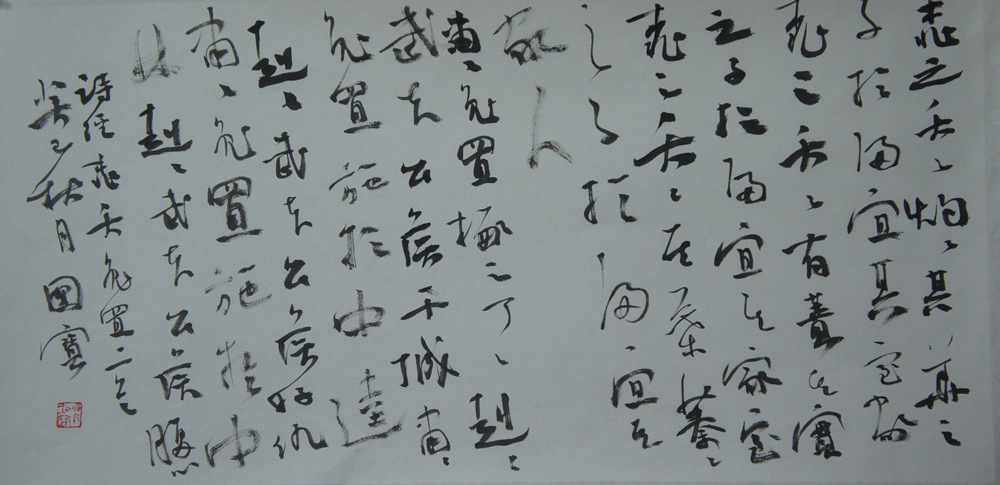 桃之夭〻灼〻其華之
子於歸宜其室家
桃之夭〻有蕡其實
之子於歸宜其家室
桃之夭〻其葉蓁〻
之子於歸宜其
家人
肅〻兔罝椓之丁〻赳〻
武夫公侯干城肅〻
兔罝施於中逵
赳〻武夫公侯好仇
肅〻兔罝施於中
林赳〻武夫公侯腹心
詩經桃夭兔罝二首
秋月國寶